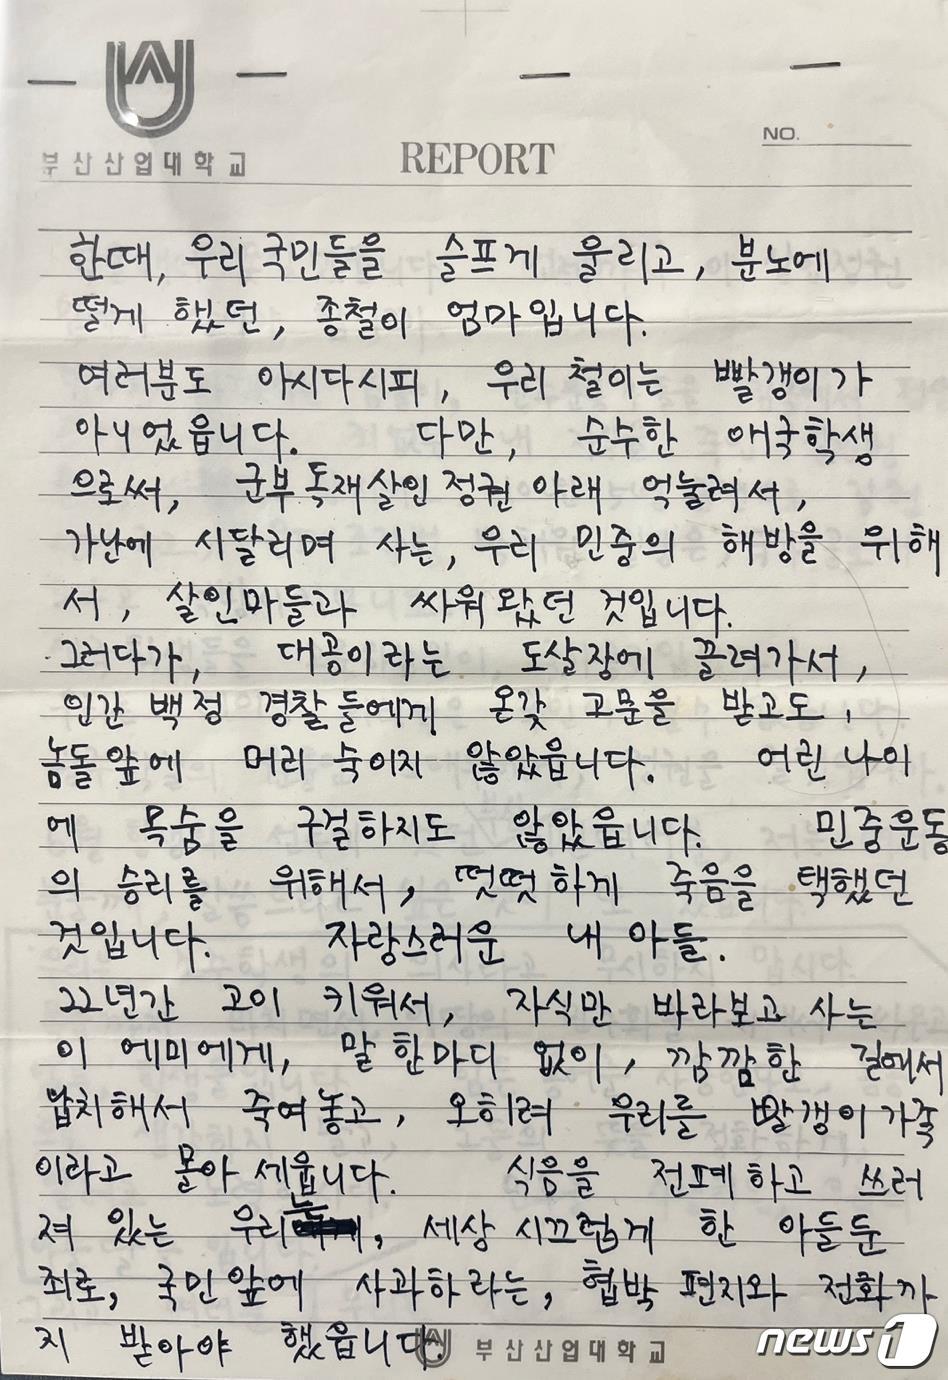 부산산업대학교
REPORT
NO.
한때, 우리 국민들을 슬프게 울리고, 분노에
떨게 했던, 종철이 엄마입니다.
여러분도 아시다시피, 우리 철이는 빨갱이가
아니었읍니다. 다만, 순수한 애국학생
으로써, 군부독재살인정권 아래 억눌려서,
가난에 시달리며 사는, 우리 민중의 해방을 위해
서, 살인마들과 싸워왔던 것입니다.
그러다가, 대공이라는 도살장에 끌려가서,
인간백정 경찰들에게 온갖 고문을 받고도,
놈돌앞에 머리 숙이지 않았읍니다. 어린 나이
에 목숨을 구걸하지도 않았읍니다. 민중운동
의 승리를 위해서, 떳떳하게 죽음을 택했던
것입니다. 자랑스러운 내 아들.
22년간 고이 키워서, 자식만 바라보고 사는
이 에미에게, 말 한마디 없이, 깜깜한 길에서
납치해서 죽여놓고, 오히려 우리를 빨갱이가족
이라고 몰아세웁니다. 식음을 전폐하고 쓰러
져 있는 우리는, 세상 시끄럽게 한 아들둔
죄로, 국민앞에 사과하라는, 협박 편지와 전화까
지 받아야 했읍니다.
부산산업대학교
news1